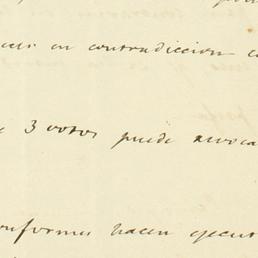 en contradiccion
3 votos puede revoca
conformes hacen ejecut